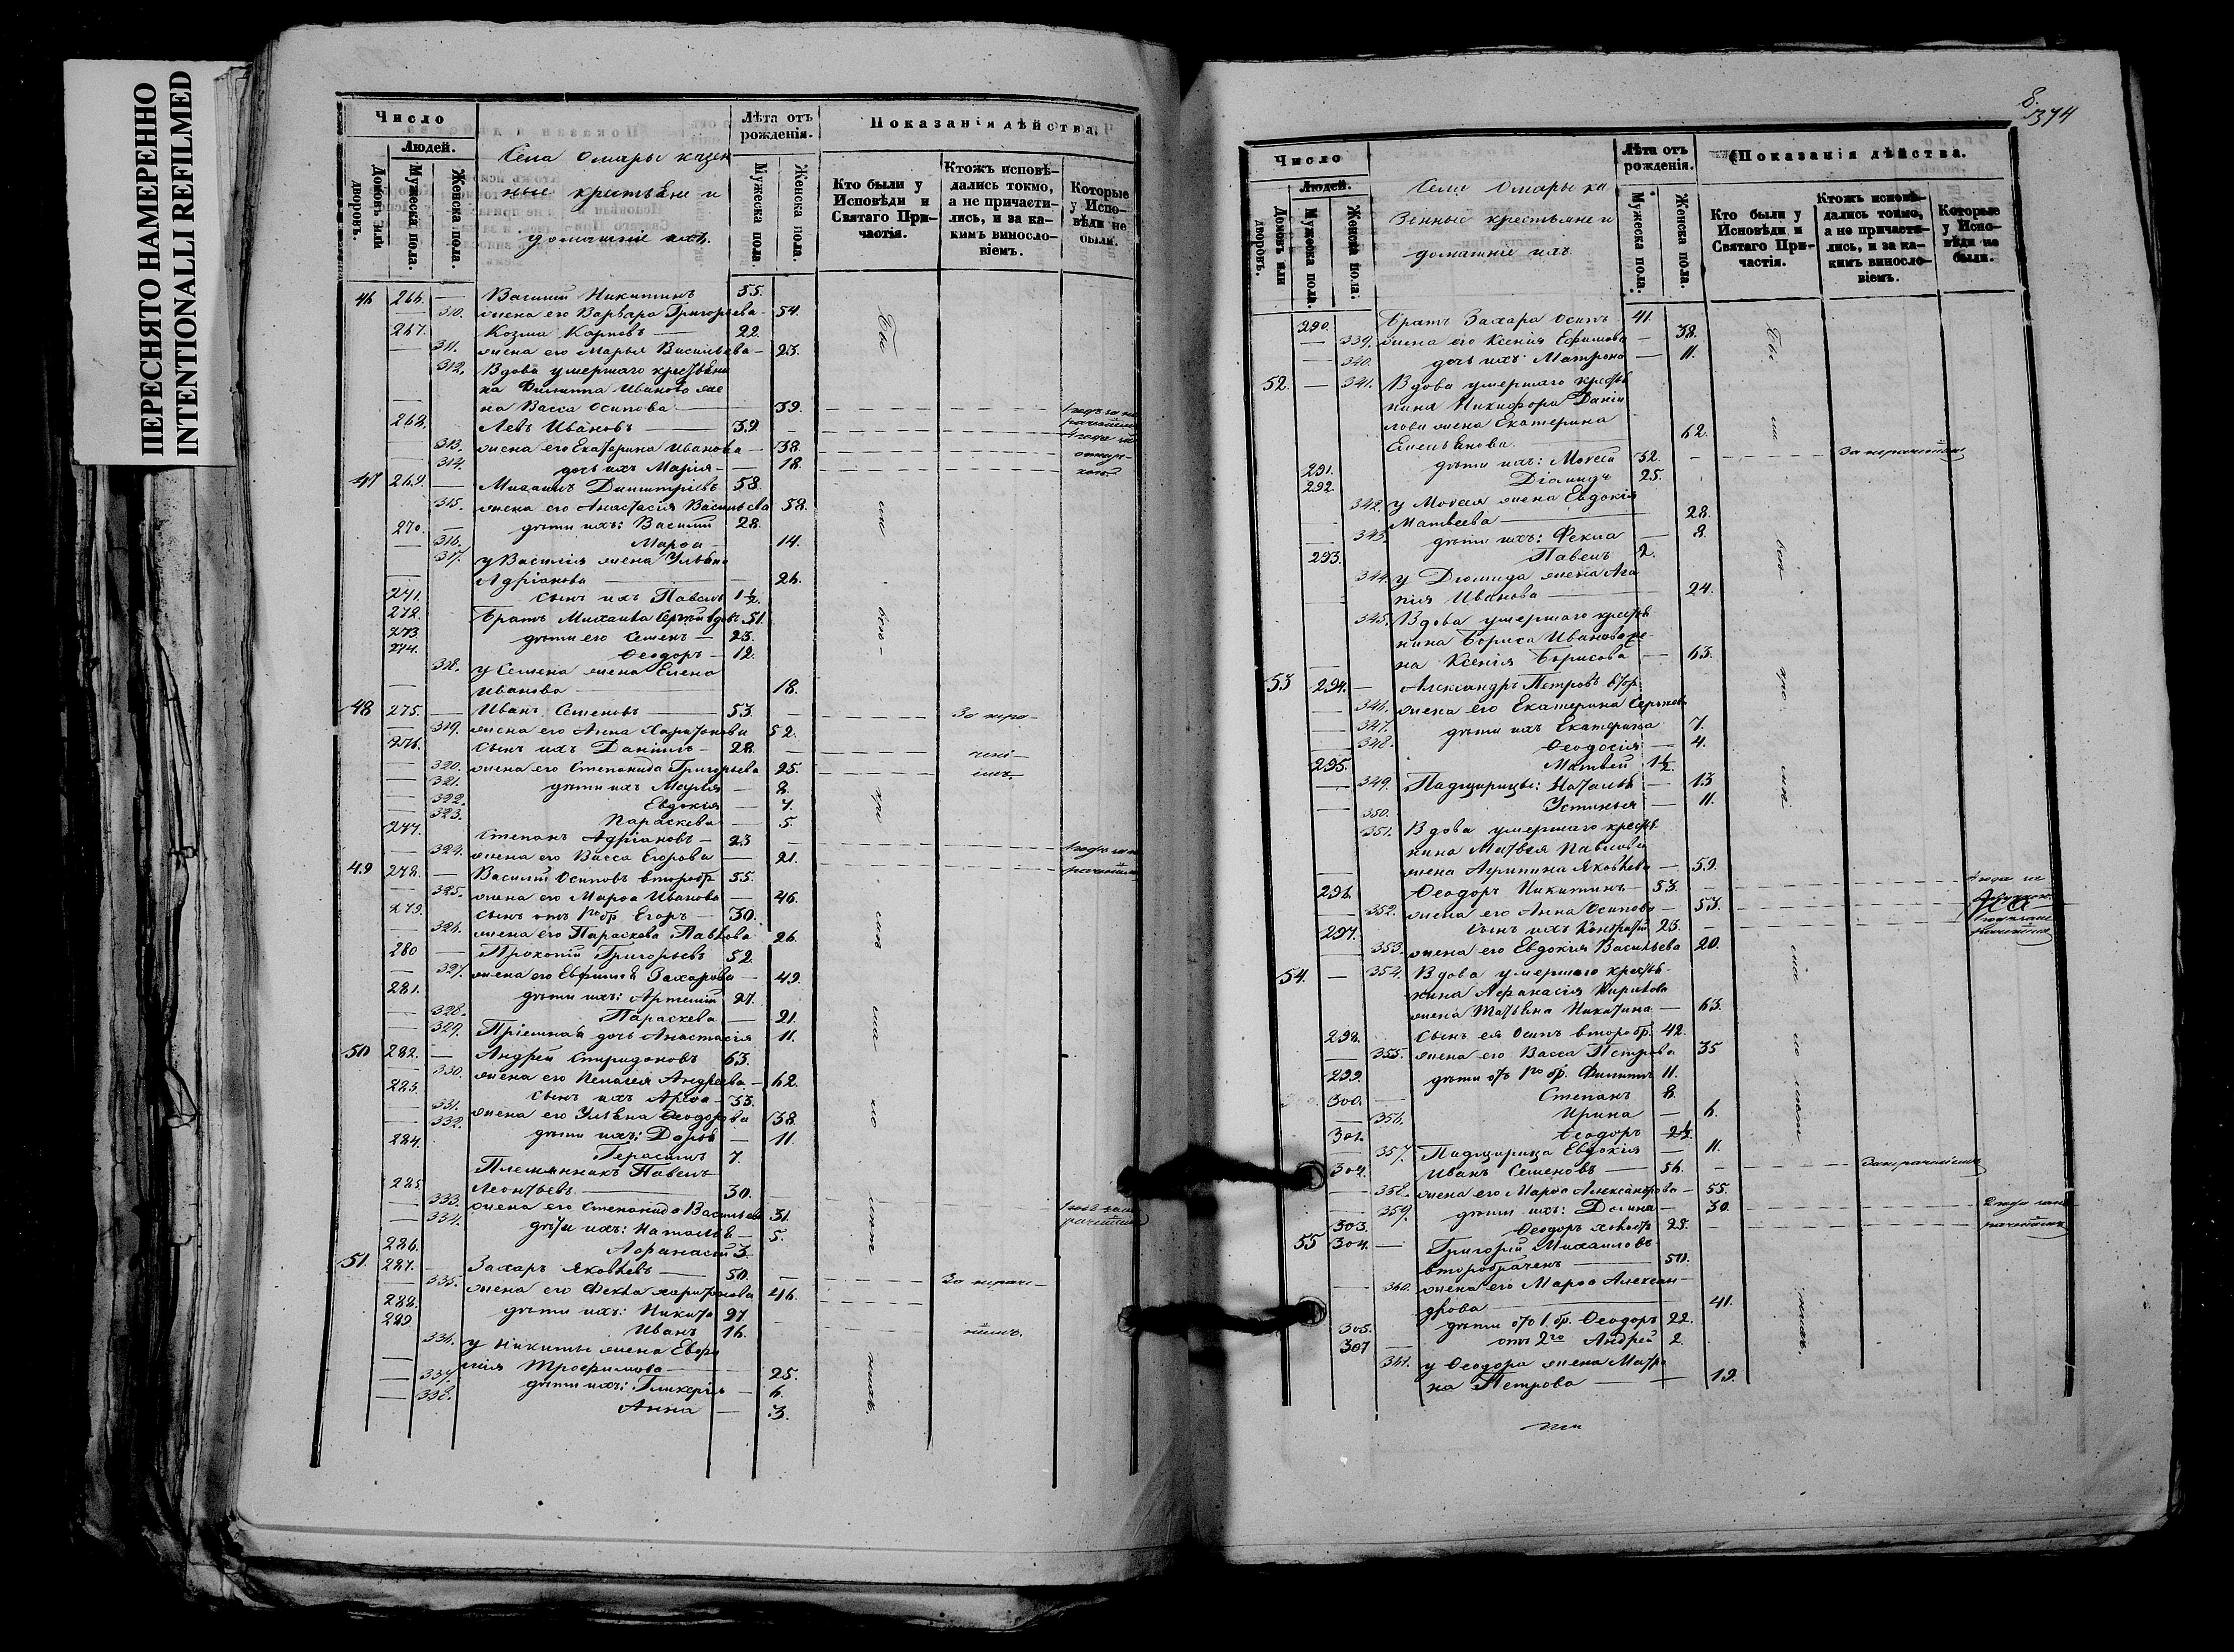 ПЕРЕСНЯТО НАМЕРЕННО
INTENTIONALLI REFILMED
Число
Людей.
Домовъ или дворовъ.
Мужеска пола.
Женска пола.
Села Омары казен
ные крестьяне и
домашніе ихъ.
Лѣта отъ рожденія.
Мужеска пола.
Женска пола.
Показанія дѣйства.
Кто были у Исповѣди и Святаго Причастія.
Ктожъ исповѣдались токмо, а не причастились, и за какимъ винословіемъ.
Которые у Исповѣди не были.
46 266. — Василій Никитинъ 55.
310. жена его Варвара Григорьева — 54.
267. Козма Карповъ — 22.
311. жена его Марья Васильева — 23.
312. Вдова умершаго крестьяни
на Филиппа Иванова же
на Васса Осипова — 39.
268. Левъ Ивановъ — 39.
313. жена его Екатерина Иванова — 38.
314. дочь ихъ Марія — 18.
47 269. — Михаилъ Димитріевъ 58.
315. жена его Анастасія Васильева 58.
270. — дѣти ихъ: Василій 28.
316. Марѳа — 14.
317. у Василія жена Ульяна
Адріанова — 26.
271. сынъ ихъ Павелъ 1½.
272. Братъ Михаила Сергій вдовъ 51.
273 дѣти его Семенъ — 23.
274. Ѳеодоръ — 12.
318. у Семена жена Елена
Иванова — 18.
48 275. — Иванъ Семеновъ — 53. За нера-
319. жена его Анна Харитонова 52.
276. сынъ ихъ Даніилъ — 28. чені-
320. жена его Степанида Григорьева 25. емъ.
321. дѣти ихъ Марія — 8.
322. Евдокія — 7.
323. Параскева — 5.
277. Степанъ Адріановъ — 23
324. жена его Васса Егорова — 21.
49 278. — Василій Осиповъ второбр 55.
325. жена его Марѳа Иванова — 46.
279. сынъ отъ 1го бр. Егоръ — 30.
326. жена его Параскева Павлова 26.
280 — Прокопій Григорьевъ 52.
327. жена его Евфимія Захарова — 49.
281. дѣти ихъ: Артемій 27.
328. Параскева — 21.
329. Пріемная дочь Анастасія 11.
50 282. — Андрей Спиридоновъ 63.
330. жена его Пелагея Андреева — 62.
283. сынъ ихъ — 33.
331. жена его Ульяна Ѳеодорова 38.
332. дѣти ихъ: Дарья — 11.
284. Герасимъ 7.
Племянникъ Павелъ
285. Леонтьевъ — 30.
333. жена его Степанида Васильева 31.
334. дѣти ихъ: Наталья — 5.
286. Аѳанасій 3.
51. 287. — Захаръ Яковлевъ — 50. За нераче-
335. жена его Фекла Харитонова 46.
288. дѣти ихъ: Никита 27
289 Иванъ 16. ніемъ.
336. у Никиты жена Евфи
мія Трофимова — 25.
337. дѣти ихъ: Гликерія — 6.
338. Анна — 3.
8.
374
Число
Людей.
Домовъ или дворовъ.
Мужеска пола.
Женска пола.
Села Омары ка
зенные крестьяне и
домашніе ихъ
Лѣта отъ рожденія.
Мужеска пола.
Женска пола.
Показанія дѣйства.
Кто были у Исповѣди и Святаго Причастія.
Ктожъ исповѣдались токмо, а не причастились, и за какимъ винословіемъ.
Которые у Исповѣди не были.
290. братъ Захара Осипъ 41.
339. жена его Ксенія Ефимова — 38.
340. дочь ихъ: Матрона — 11.
52. — 341. Вдова умершаго кресть
янина Никифора Даніи
лова жена Екатерина
Емельянова. 62.
291. дѣти ихъ: Моисей 32. За нерачені
292. Діомидъ 25.
342. у Моисея жена Евдокія
Матвеева — 28.
343. дѣти ихъ: Фекла — 8.
293. Павелъ 2.
344. у Діомида жена Ага
пія Иванова — 24.
345. Вдова умершаго кресть
янина Бориса Иванова же-
на Ксенія Борисова — 63.
53 294. — Александръ Петровъ втор.
346. жена его Екатерина Сергеев
347. дѣти ихъ Екатерина 7.
348. Ѳеодосія — 4.
295. Матвей 1½.
349. Падчерицы: Наталья — 13
350. Устинья — 11.
351. Вдова умершаго кресть
янина Матвея Павлова
жена Агрипина Яковлева — 59.
296. Ѳеодоръ Никитинъ — 53.
352. жена его Анна Осипова — 53.
297. сынъ ихъ Кондратій 23.
353. жена его Евдокія Васильева 20.
54. — 354. Вдова умершаго кресть-
янина Аѳанасія Кирилова
жена Татьяна Никитина — 63.
298. сынъ ея Осипъ второбр. 42.
355. жена его Васса Петрова 35
299. дѣти отъ 1го бр. Филиппъ 11.
300. — Степанъ 8.
356. Ирина — 6.
301. Ѳеодоръ 2½.
357. Падчерица Евдокія — 11.
302. Иванъ Семеновъ — 56.
358. жена его Марѳа Александрова — 55.
359. дѣти ихъ: — 30.
303. Ѳеодоръ 28.
55 304. — Григорій Михайловъ
второбраченъ — 50.
360. жена его Марѳа Алексан-
дрова — 41.
305. дѣти отъ 1 бр. Ѳеодоръ 22.
307 — отъ 2го Андрей 2.
361. у Ѳеодора жена Матро
на Петрова — 19.